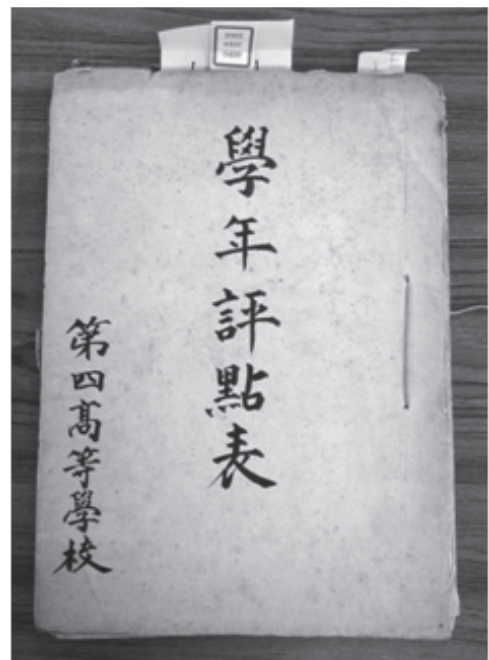 學年評點表
第四髙等學校